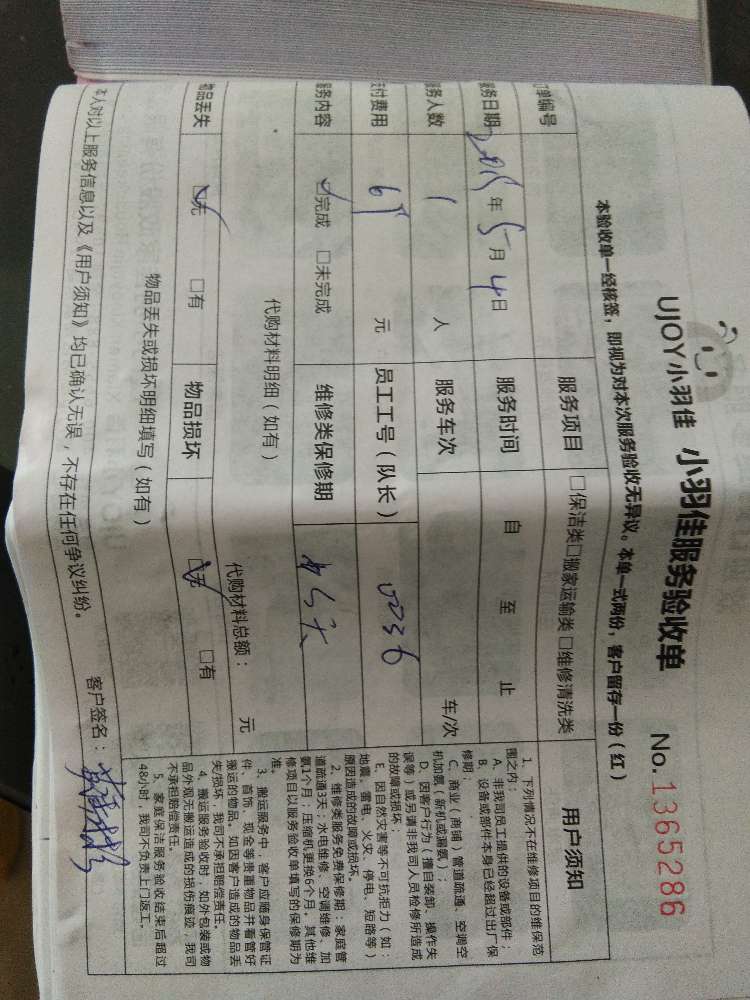 UJOY小羽佳 小羽佳服务验收单 No.1365286
本验收单一经核签，即视为对本次服务验收无异议。本单一式两份，客户留存一份（红）
单编号 服务项目 □保洁类□搬家运输类□维修清洗类
务日期 年5月4日 服务时间 自 至 止
务人数 1 人 服务车次 车/次
付费用 元 员工工号（队长） 0036
务内容 ☑完成 □未完成 维修类保修期
代购材料明细（如有） 代购材料总额： 元
物品丢失 ☑无 □有 物品损坏 ☑无 □有
物品丢失或损坏明细填写（如有）
本人对以上服务信息以及《用户须知》均已确认无误，不存在任何争议纠纷。 客户签名：
用户须知
1、下列情况不在维修项目的维保范
围之内：
A、非我司员工提供的设备或部件；
B、设备或部件本身已经超过出厂保
修期；
C、商业（商铺）管道疏通、空调空
机加氨（新机或漏氨）；
D、因客户行为（擅自装卸、操作失
误等）或另请非我司人员检修所造成
的故障或损坏；
E、因自然灾害等不可抗拒力（如：
地震、雷电、火灾、停电、短路等）
原因造成的故障或损坏。
2、维修类服务免费保修期：家庭管
道疏通3天；水电维修、空调维修、加
氨1个月；压缩机更换6个月。其他维
修项目以服务验收单填写的保修期为
准。
3、搬运服务中，客户应随身保管证
件、首饰、现金等贵重物品并看管好
搬运的物品。如因客户造成的物品丢
失/损坏，我司不承担赔偿责任。
4、搬运服务验收时，如外包装或物
品外观无搬运造成的损伤痕迹，我司
不承担赔偿责任。
5、家庭保洁服务验收结束后超过
48小时，我司不负责上门返工。